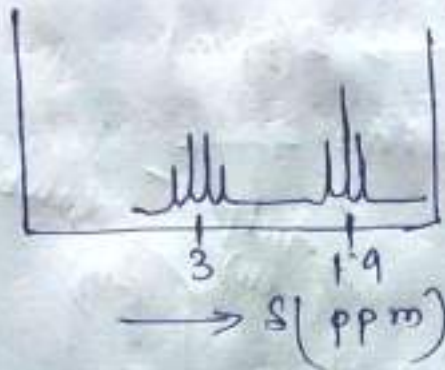 3 1.9
→ δ(ppm)